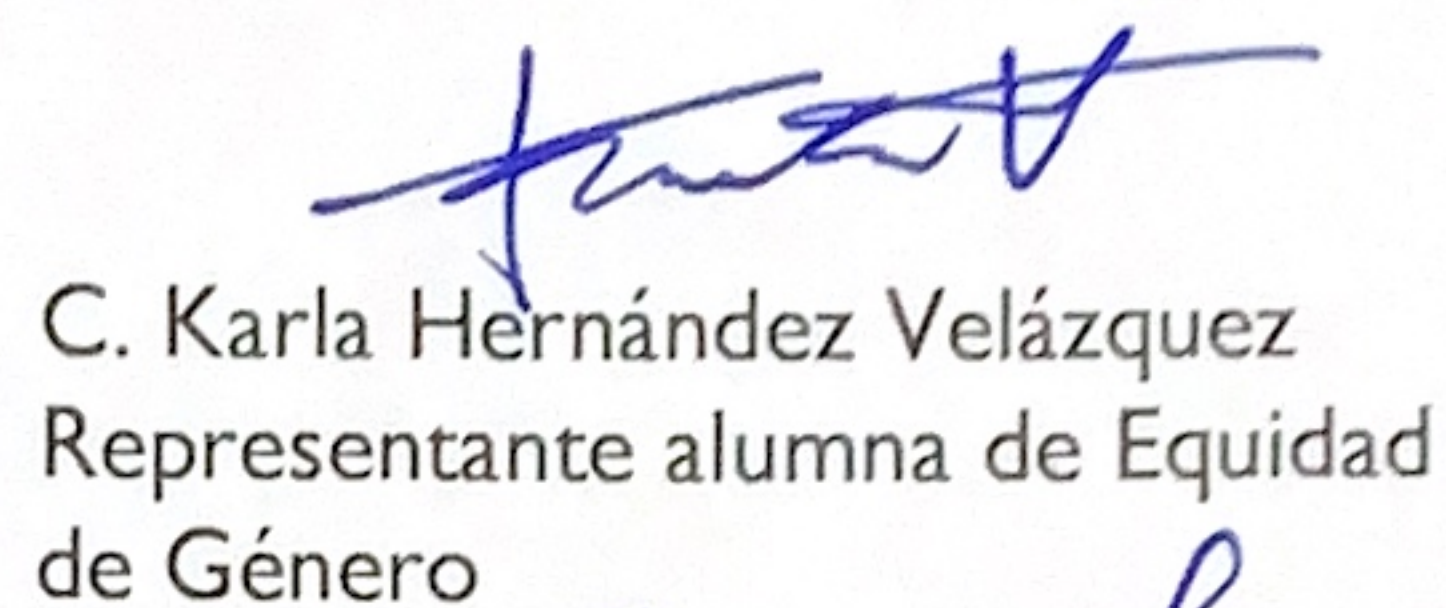 C. Karla Hernández Velázquez
Representante alumna de Equidad
de Género